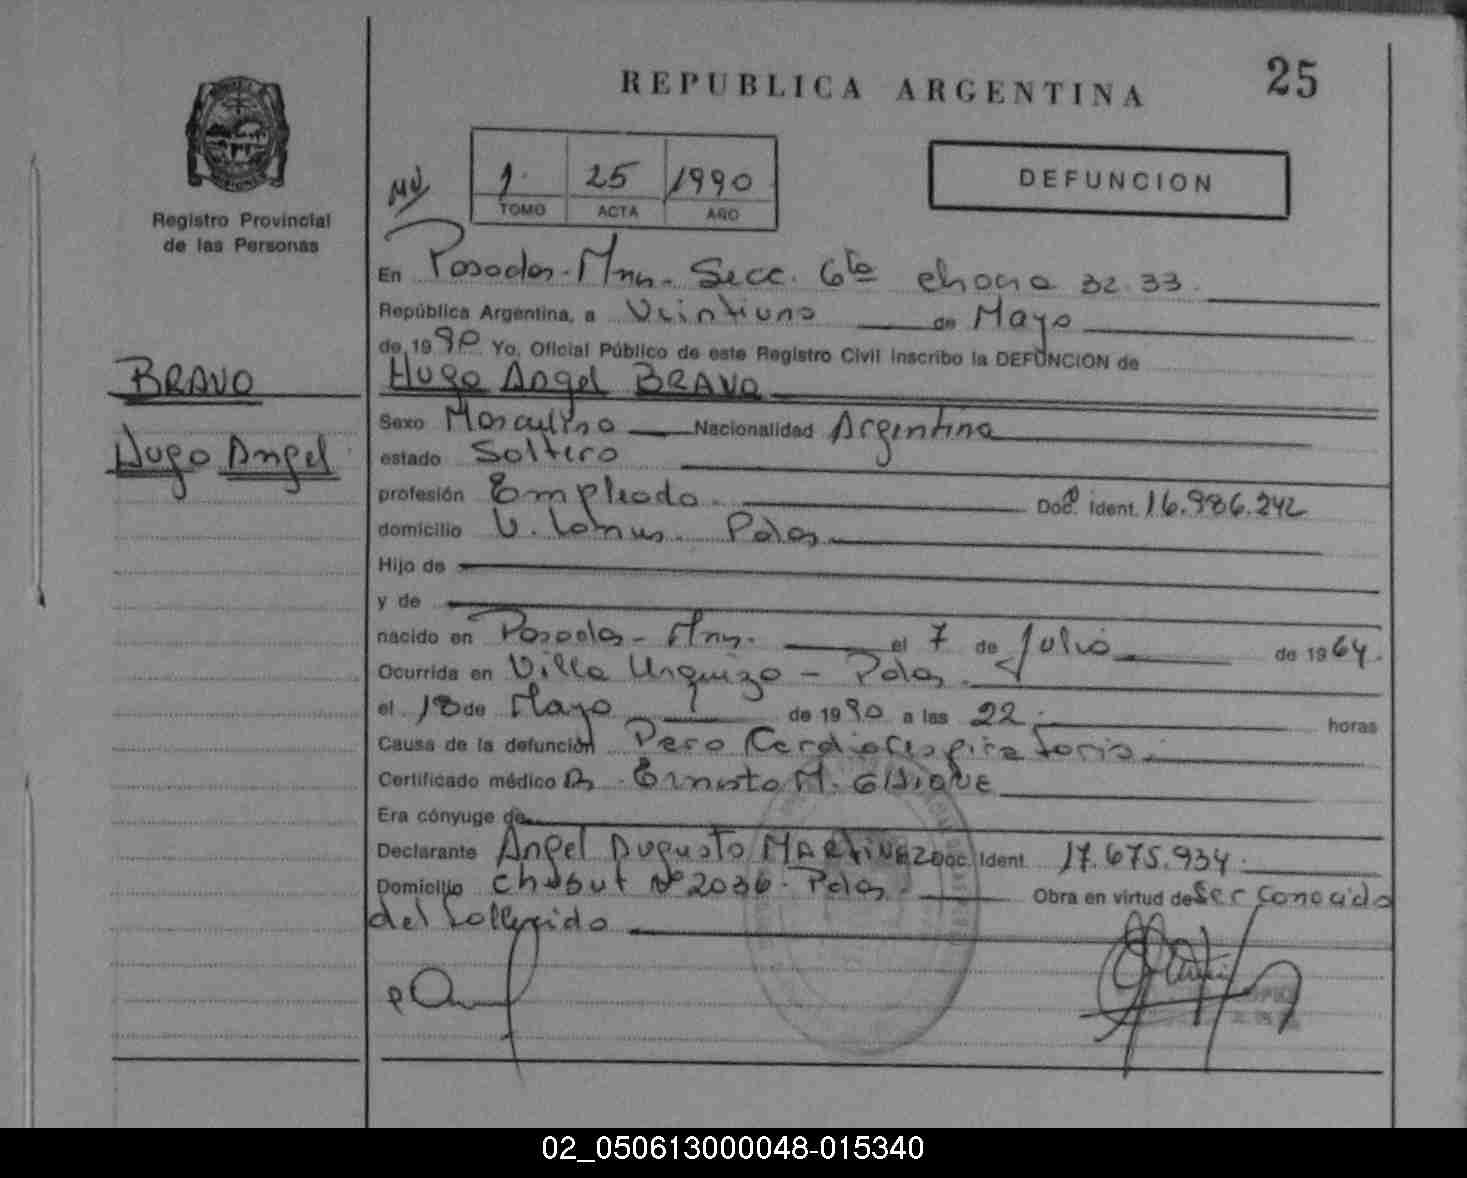 REPUBLICA ARGENTINA
25
Registro Provincial
de las Personas
1 25 1990
TOMO ACTA AÑO
DEFUNCION
En Posadas - Mnes. Secc. 6ta chacra 32.33.
República Argentina, a Veintiuno de Mayo
de 1990 Yo, Oficial Público de este Registro Civil inscribo la DEFUNCION de
BRAVO
Hugo Angel
Hugo Angel BRAVO
Sexo Masculino Nacionalidad Argentina
estado Soltero
profesión Empleado. Doc. Ident. 16.986.242
domicilio V. Lanus. Pdas
Hijo de
y de
nacido en Posadas - Mnes. el 7 de Julio de 1964.
Ocurrida en Villa Urquiza - Pdas.
el 18 de Mayo de 1990 a las 22. horas
Causa de la defunción Paro Cardiorespiratorio.
Certificado médico Dr. Ernesto M.
Era cónyuge de
Declarante Angel Augusto MARTINEZ Doc. Ident. 17.675.934.
Domicilio Chubut Nº 2036 - Pdas. Obra en virtud de Ser conocido
del fallecido
02_050613000048-015340